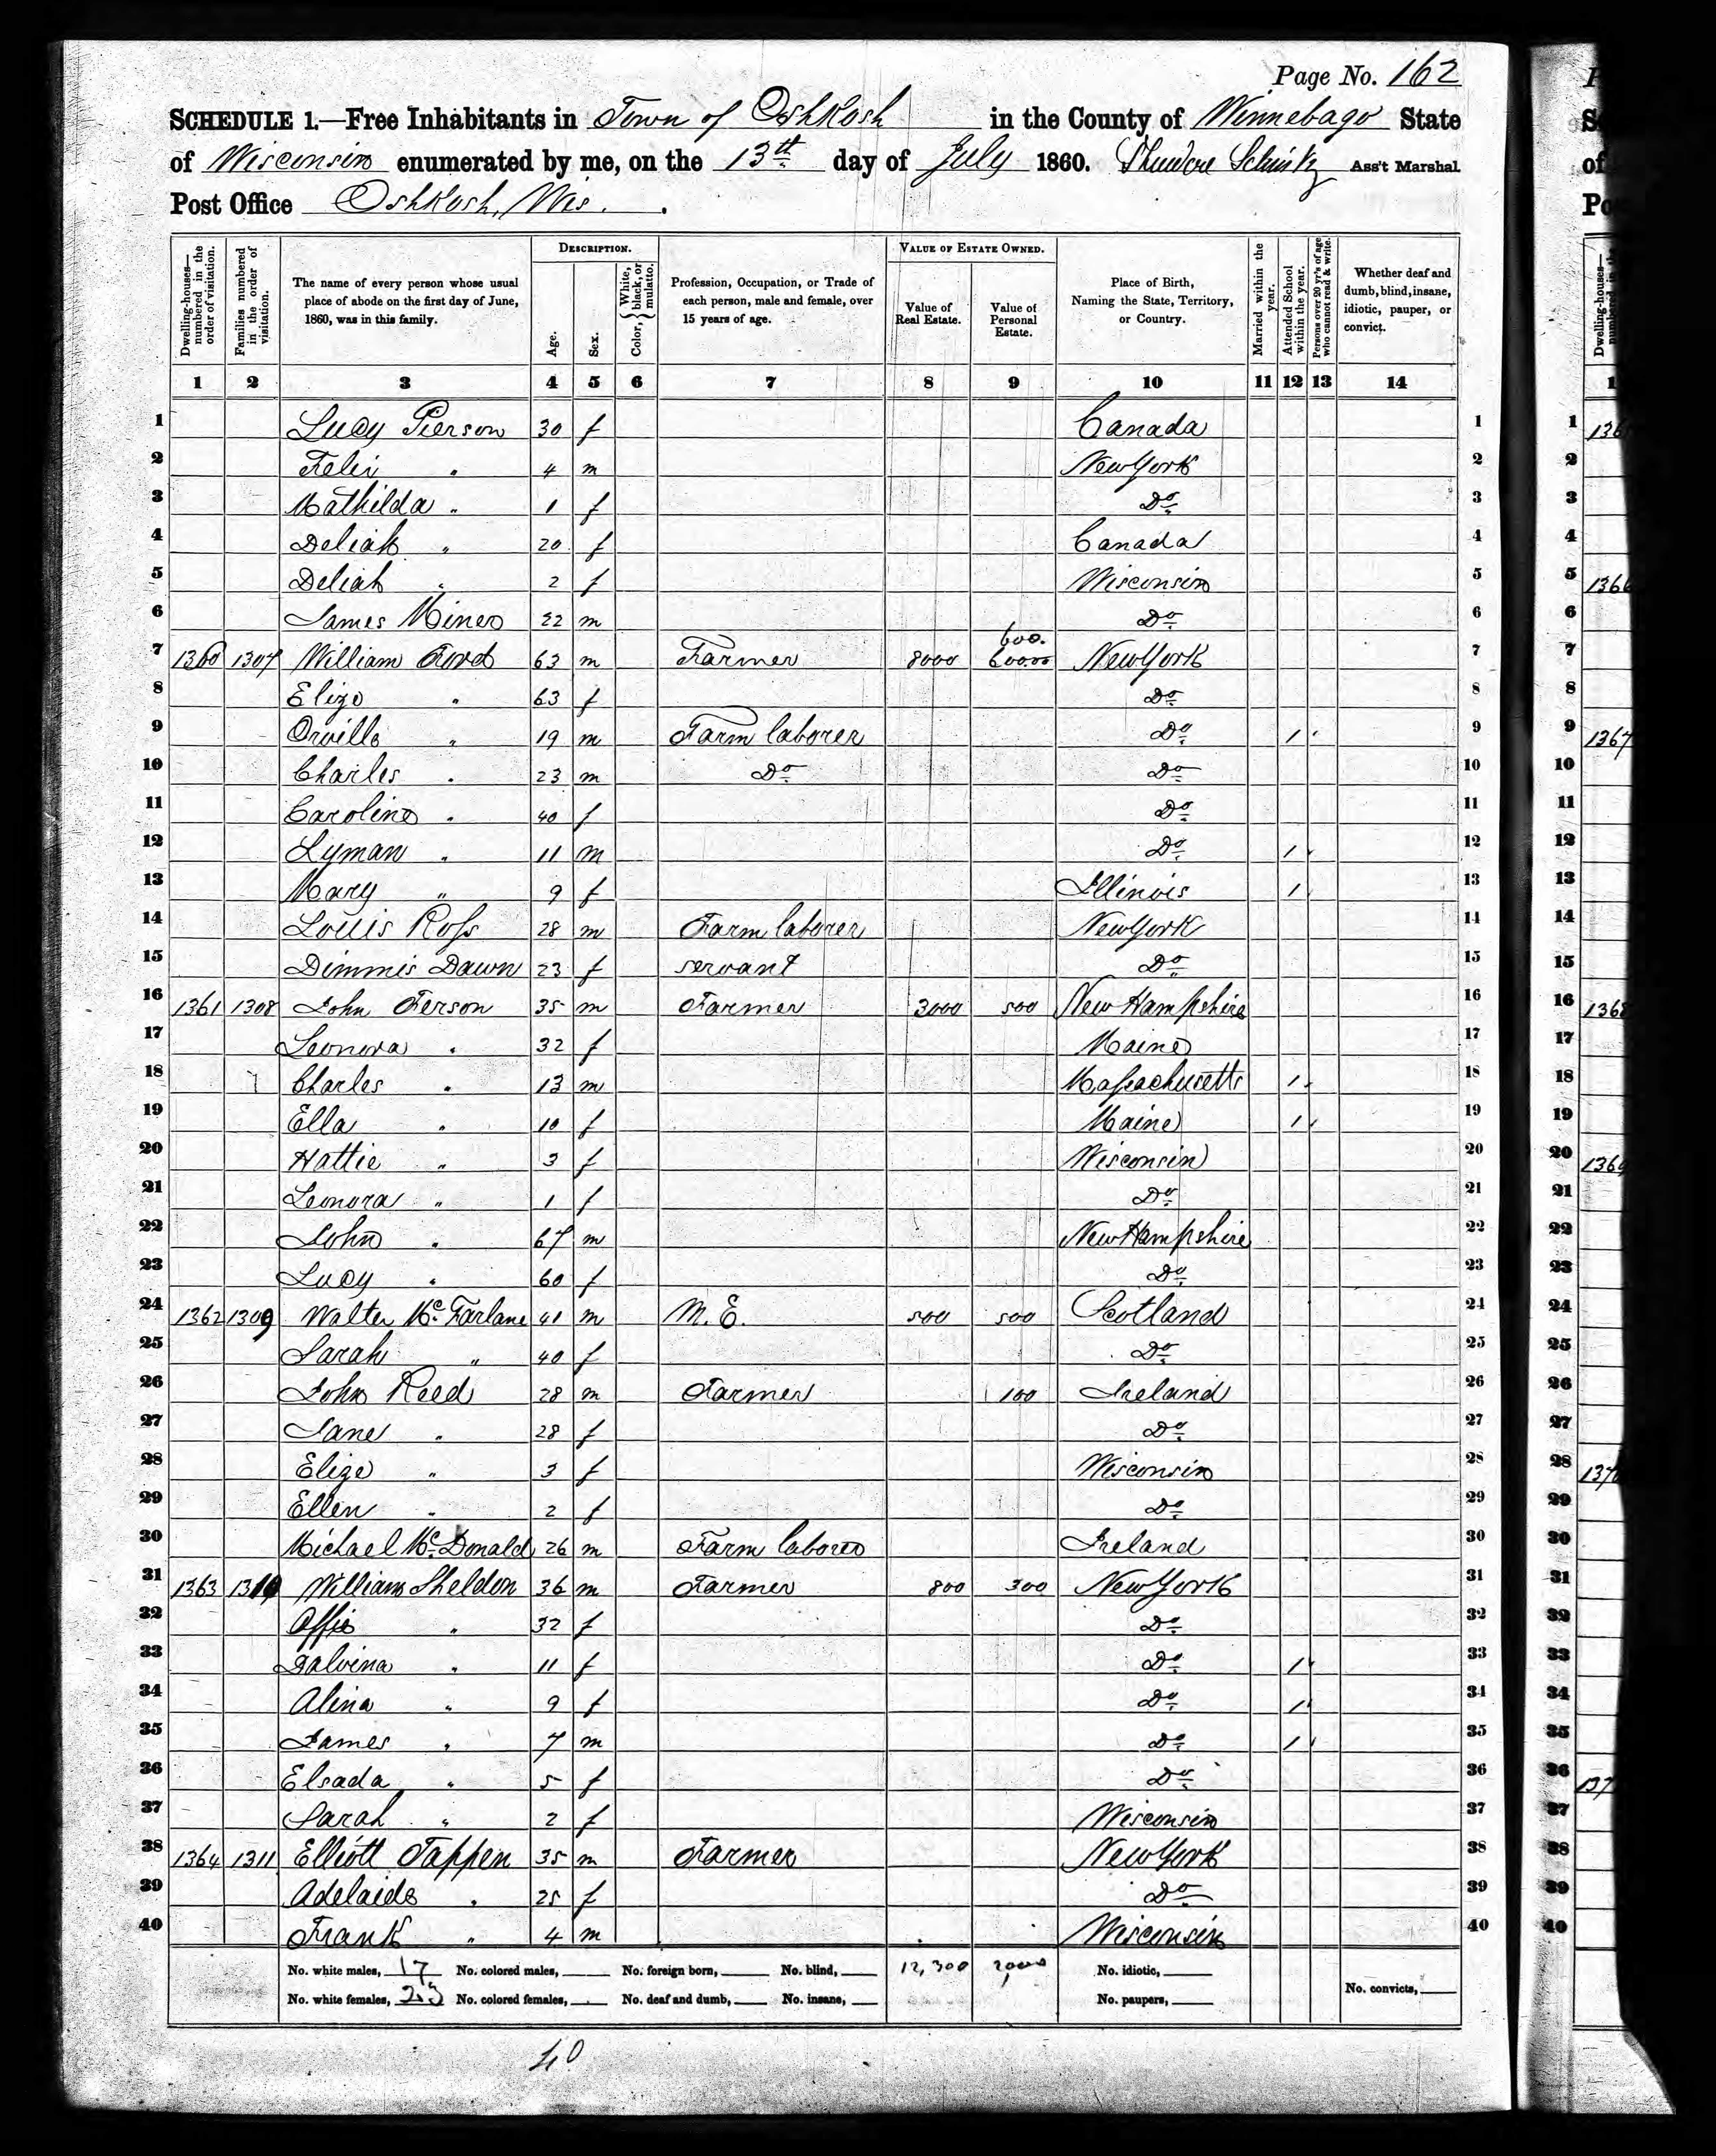 Page No. 162
SCHEDULE 1.—Free Inhabitants in Town of Oshkosh in the County of Winnebago State
of Wisconsin enumerated by me, on the 13th day of July 1860. Ass't Marshal
Post Office Oshkosh, Wis.
Dwelling-houses—numbered in the order of visitation. Families numbered in the order of visitation. The name of every person whose usual place of abode on the first day of June, 1860, was in this family. DESCRIPTION. Age. Sex. Color, { White, black, or mulatto. Profession, Occupation, or Trade of each person, male and female, over 15 years of age. VALUE OF ESTATE OWNED. Value of Real Estate. Value of Personal Estate. Place of Birth, Naming the State, Territory, or Country. Married within the year. Attended School within the year. Persons over 20 yr's of age who cannot read & write. Whether deaf and dumb, blind, insane, idiotic, pauper, or convict.
1 2 3 4 5 6 7 8 9 10 11 12 13 14
1 Lucy Pierson 30 f Canada 1
2 Felix " 4 m New York 2
3 Mathilda " 1 f Do 3
4 Deliah " 20 f Canada 4
5 Deliah " 2 f Wisconsin 5
6 James Miner 22 m Do 6
600.
7 1360 1307 William Ford 63 m Farmer 8000 60000 New York 7
8 Eliza " 63 f Do 8
9 Orville " 19 m Farm laborer Do / 9
10 Charles " 23 m Do Do 10
11 Caroline " 40 f Do 11
12 Lyman " 11 m Do / 12
13 Mary " 9 f Illinois / 13
14 Louis Ross 28 m Farm laborer New York 14
15 Dimmis Dawn 23 f servant Do 15
16 1361 1308 John Ferson 35 m Farmer 3000 500 New Hampshire 16
17 Leonora " 32 f Maine 17
18 Charles " 13 m Massachusetts / 18
19 Ella " 10 f Maine / 19
20 Hattie " 3 f Wisconsin 20
21 Leonora " 1 f Do 21
22 John " 67 m New Hampshire 22
23 Lucy " 60 f Do 23
24 1362 1309 Walter McFarlane 41 m M. E. 500 500 Scotland 24
25 Sarah " 40 f Do 25
26 John Reed 28 m Farmer 100 Ireland 26
27 Jane " 28 f Do 27
28 Eliza " 3 f Wisconsin 28
29 Ellen " 2 f Do 29
30 Michael McDonald 26 m Farm laborer Ireland 30
31 1363 1310 William Sheldon 36 m Farmer 800 300 New York 31
32 " 32 f Do 32
33 " 11 f Do / 33
34 Alina " 9 f Do / 34
35 James " 7 m Do / 35
36 Elsada " 5 f Do 36
37 Sarah " 2 f Wisconsin 37
38 1364 1311 Elliott Tappen 35 m Farmer New York 38
39 Adelaide " 25 f Do 39
40 Frank " 4 m Wisconsin 40
No. white males, 17 No. colored males, No. foreign born, No. blind, 12,300 No. idiotic,
No. white females, 23 No. colored females, No. deaf and dumb, No. insane, No. paupers, No. convicts,
40